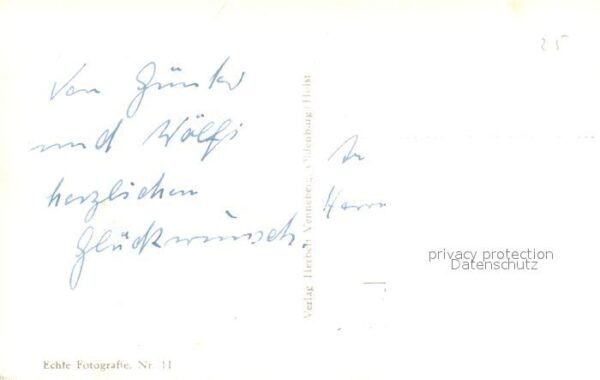 Von Günter
und Wölfi
herzlichen
Glückwunsch
An
Herrn
25
privacy protection
Datenschutz
Echte Fotografie, Nr. 11
Verlag Oldenburg/Holst